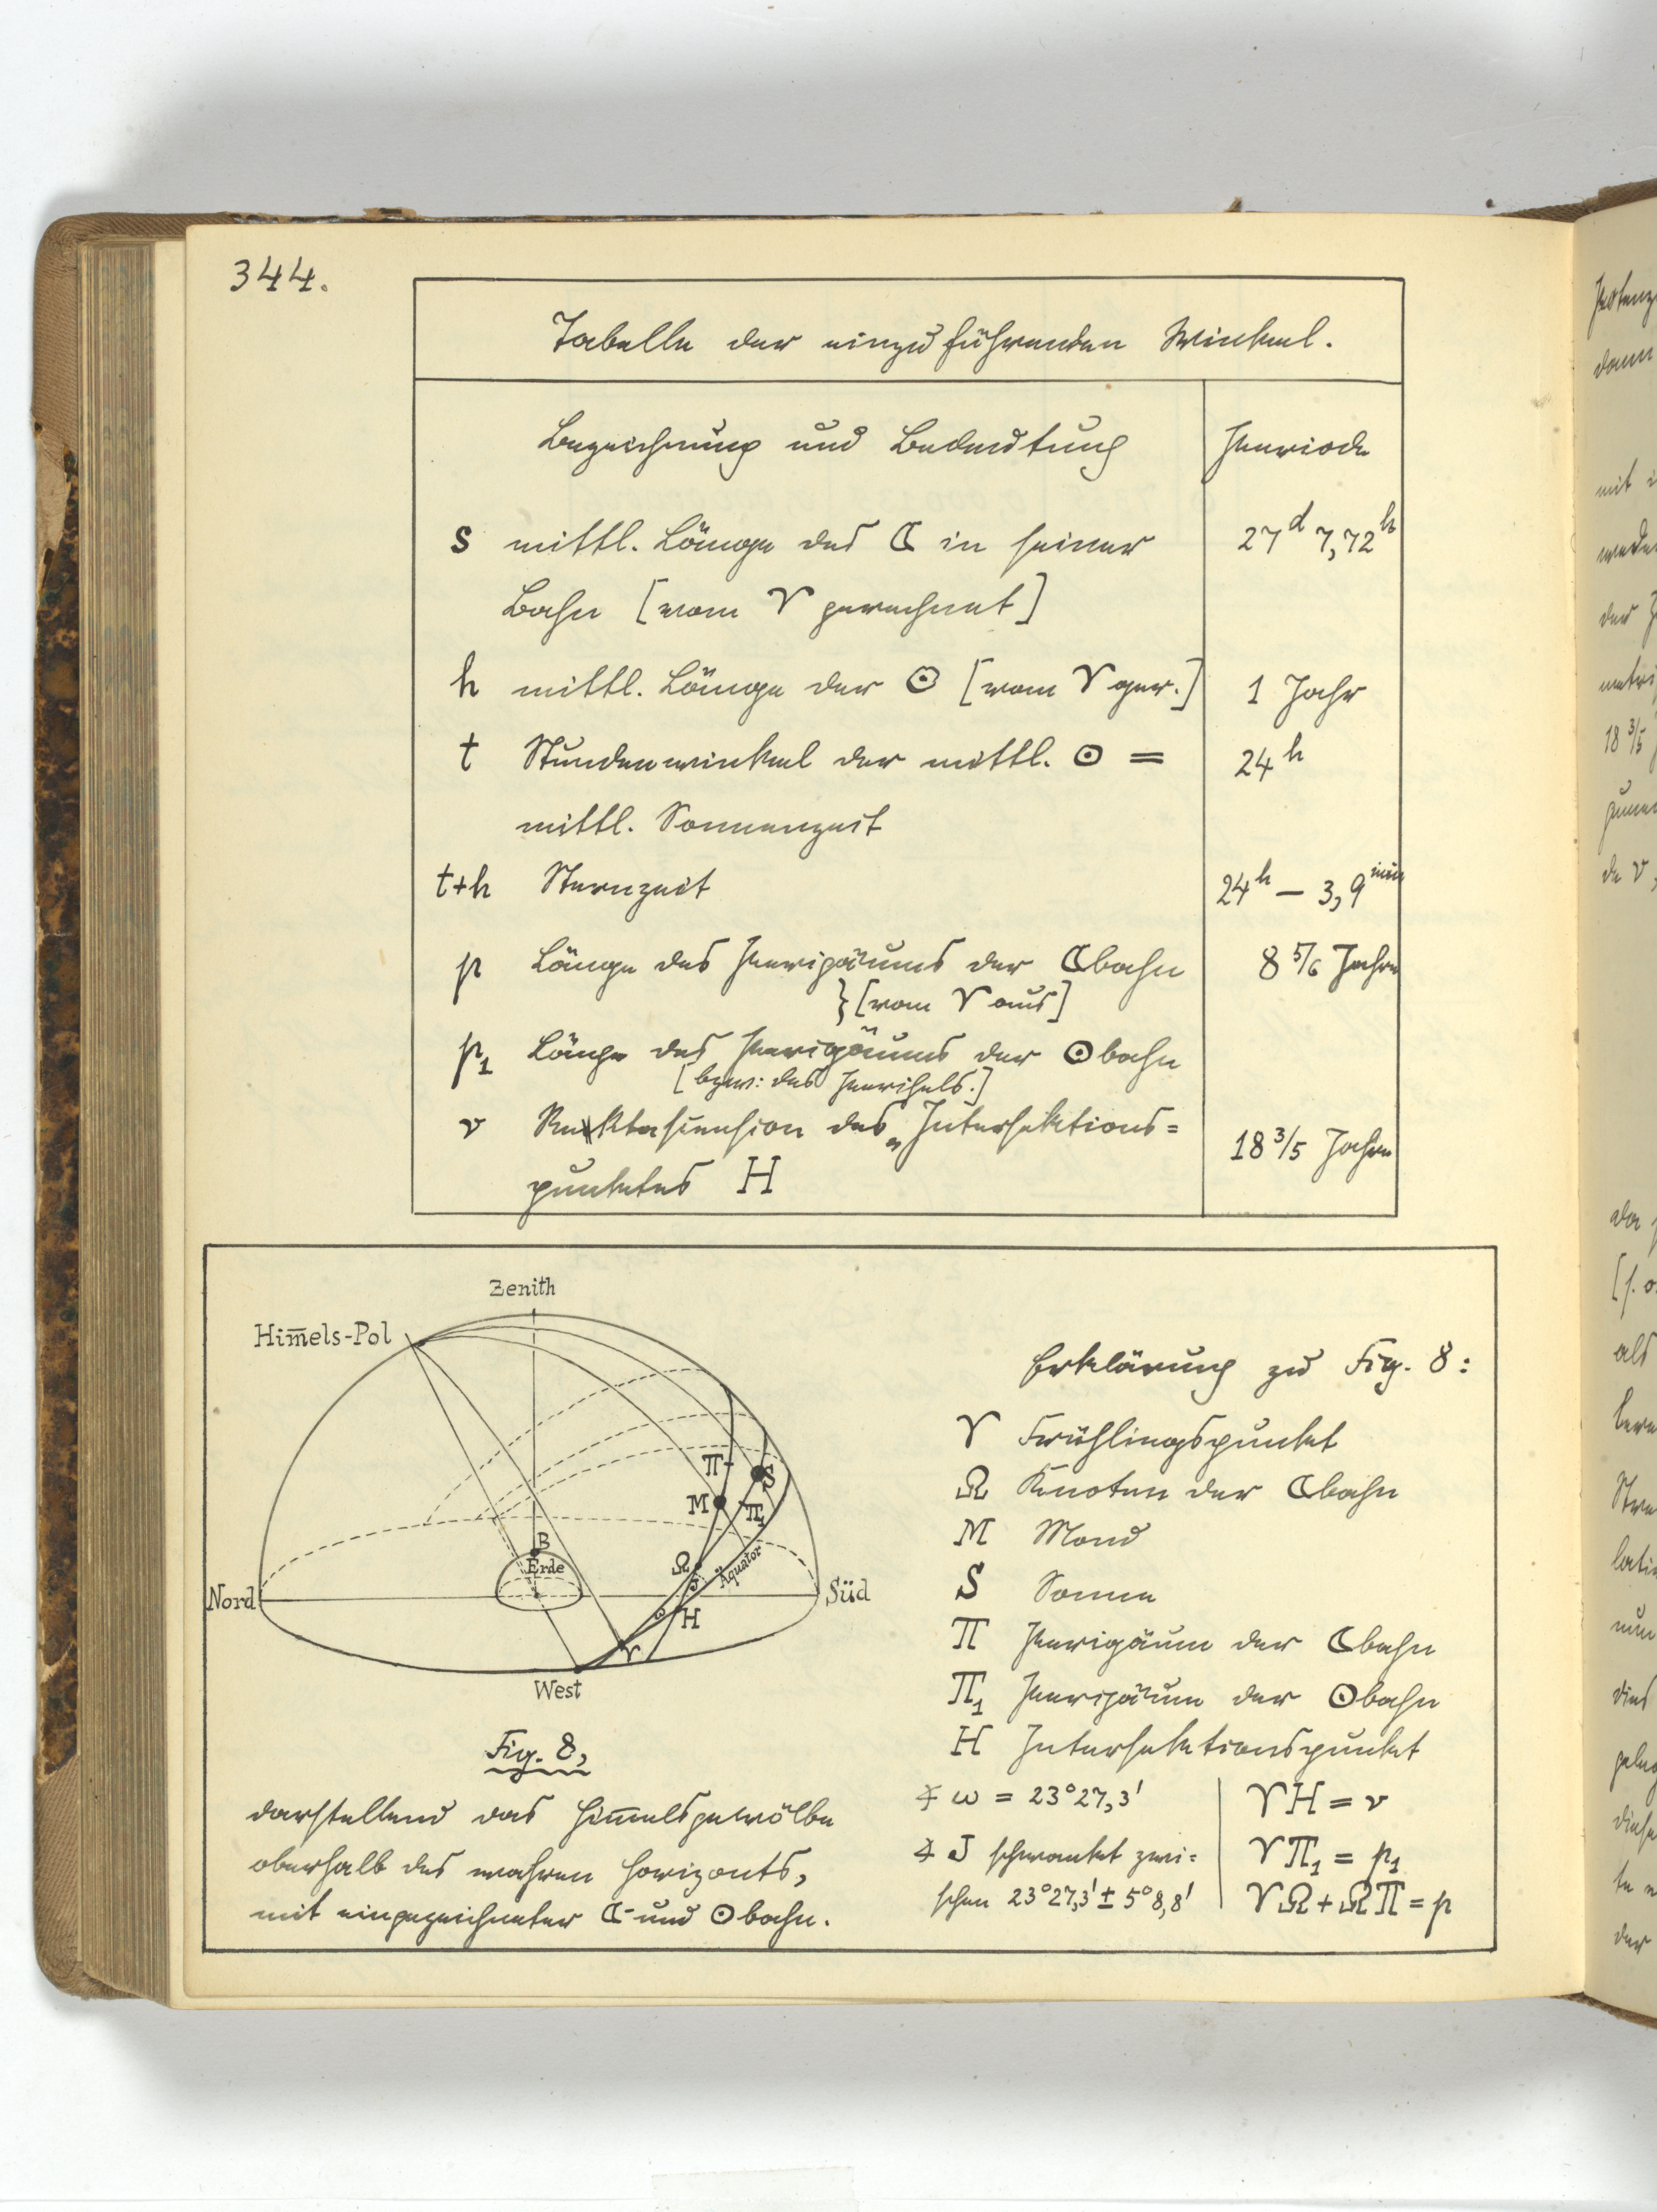 344.
Tabelle der einzuführenden Winkel.
Bezeichnung und Bedeutung Periode
s mittl. Länge des ☾ in seiner 27d 7,72h
Bahn [vom ♈ gerechnet]
h mittl. Länge der ☉ [vom ♈ ger.] 1 Jahr
t Stundenwinkel der mittl. ☉ = 24h
mittl. Sonnenzeit
t+h Sternzeit 24h — 3,9min
p Länge des Perigäums der ☾bahn 8 5/6 Jahre
}[vom ♈ aus]
p1 Länge des Perigäums der ☉bahn
[bzw: des Perihels.]
ν Rektascension des „Intersektions= 18 3/5 Jahre
punktes H
Zenith
Him̅els-Pol
Π
S
M
Π1
B
Erde
Ω
J
Äquator
Nord
Süd
ω
H
♈
West
Fig. 8,
darstellend das Him̅elsgewölbe
oberhalb des wahren Horizonts,
mit eingezeichneter ☾- und ☉bahn.
Erklärung zu Fig. 8:
♈ Frühlingspunkt
Ω Knoten der ☾bahn
M Mond
S Sonne
Π Perigäum der ☾bahn
Π1 Perigäum der ☉bahn
H Intersektionspunkt
∢ ω = 23°27,3'
∢ J schwankt zwi=
schen 23°27,3' ± 5°8,8'
♈H = ν
♈Π1 = p1
♈Ω + ΩΠ = p